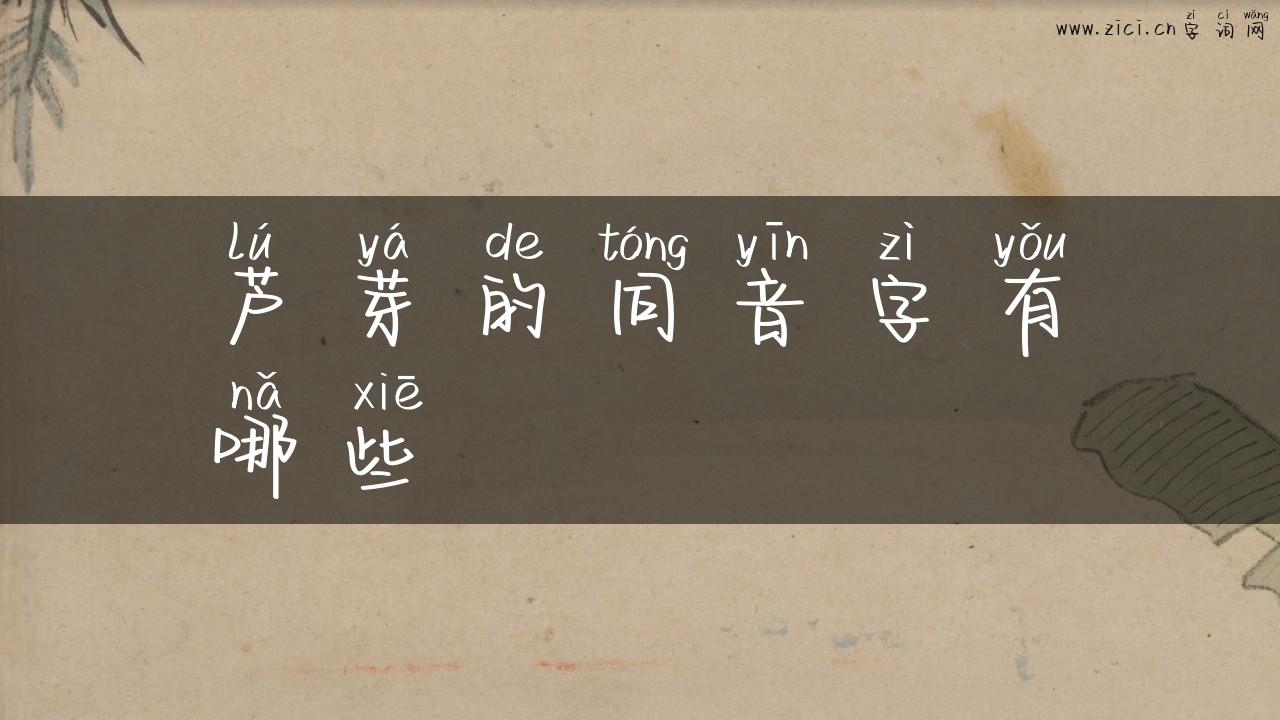 zì cí wǎng
www.zici.cn 字词网
lú yá de tóng yīn zì yǒu
芦芽的同音字有
nǎ xiē
哪些